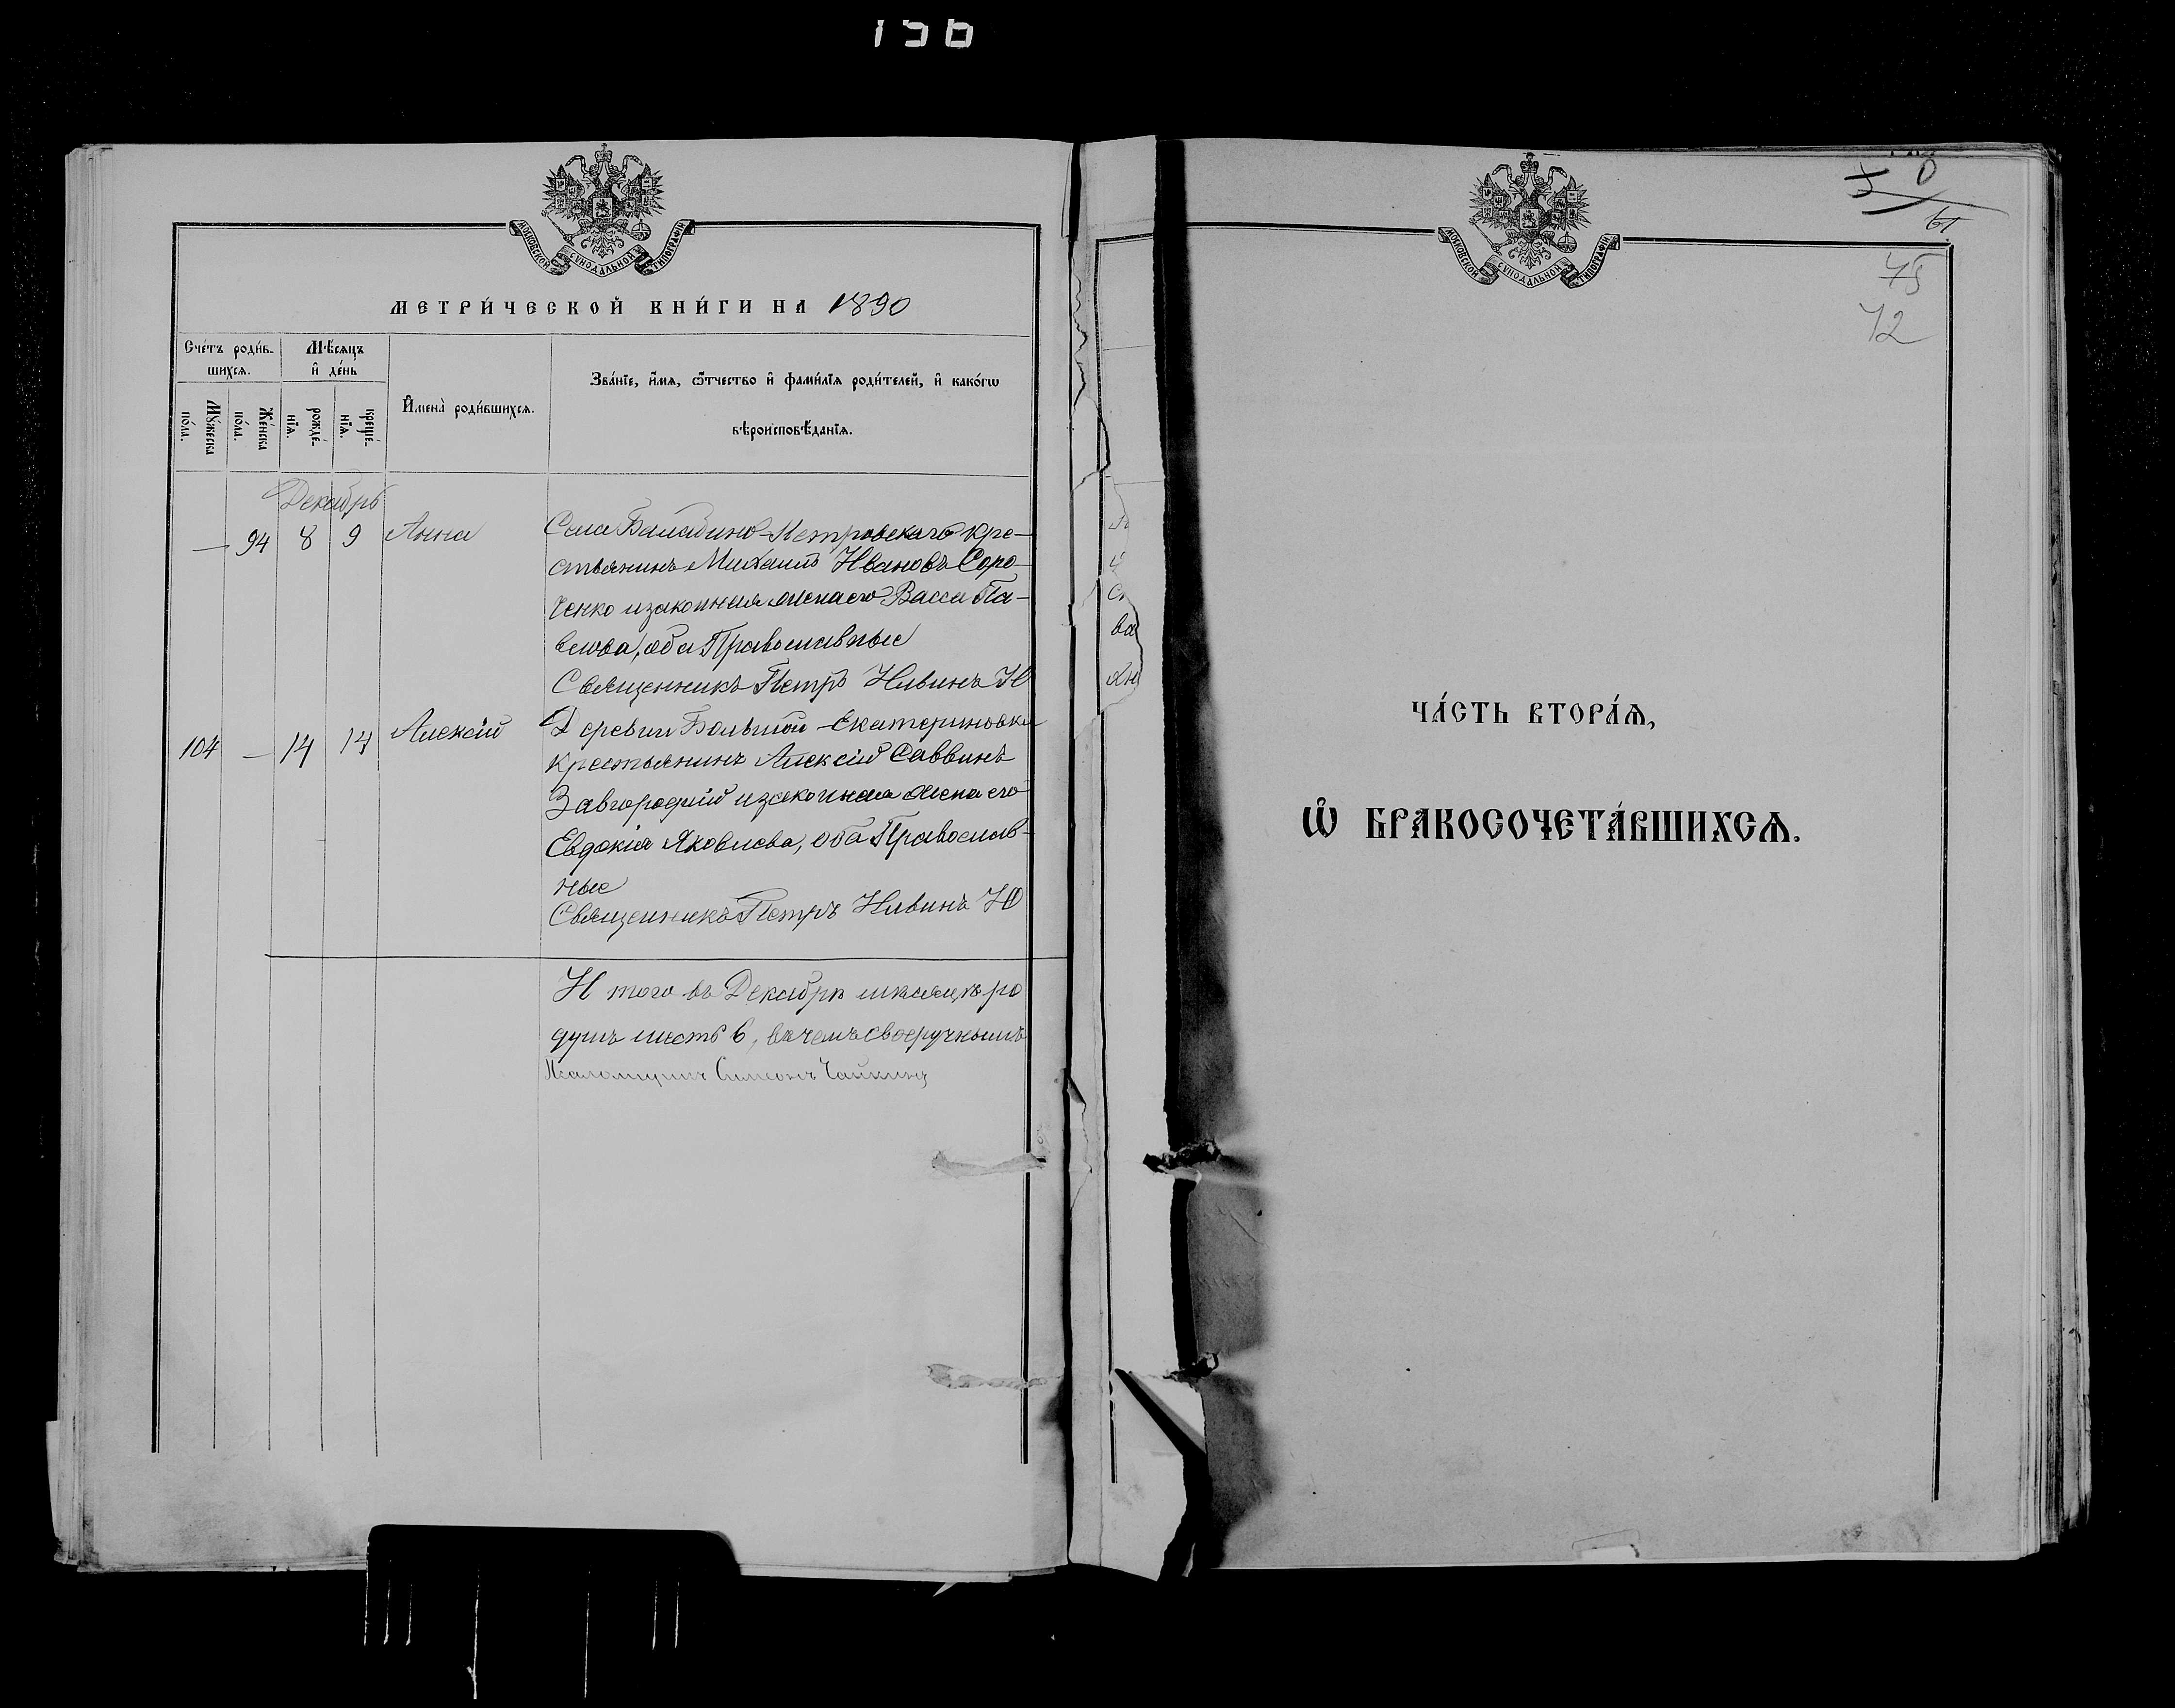 156
МОСКОВСКОЙ СУНОДАЛЬНОЙ ТИПОГРАФІИ
МЕТРИ́ЧЕСКОЙ КНИ́ГИ НА 1890
Сче́тъ роди́в-
шихсѧ.
Мѣ́сѧцъ
и҆ де́нь
Мꙋ́жеска
по́ла.
Же́нска
по́ла.
рожде́-
нїѧ.
креще́-
нїѧ.
И҆мена̀ роди́вшихсѧ.
Зва́нїе, и҆́мѧ, ѻ҆́тчество и҆ фами́лїѧ роди́телей, и҆ како́гѡ
вѣроисповѣ́данїѧ.
Декабрь
— 94 8 9 Анна
Села Балабино-Петровскаго кре-
стьянинъ Михаилъ Ивановъ Соро-
ченко и законная жена его Васса Па-
влова, оба Православные
Священникъ Петръ
104 — 14 14 Алексій
Деревни Большой-Екатериновки
крестьянинъ Алексій Саввинъ
Завгородній и законная жена его
Евдокія Яковлева, оба Православ-
ные
Священникъ Петръ
Итого въ Декабрѣ мѣсяцѣ ро
душъ шесть 6, въ чемъ своеручнымъ
Псаломщикъ Симеонъ
ва
МОСКОВСКОЙ СУНОДАЛЬНОЙ ТИПОГРАФІИ
61
45
72
ЧА́СТЬ ВТОРА́Ѧ,
Ѽ БРАКОСОЧЕТА́ВШИХСѦ.